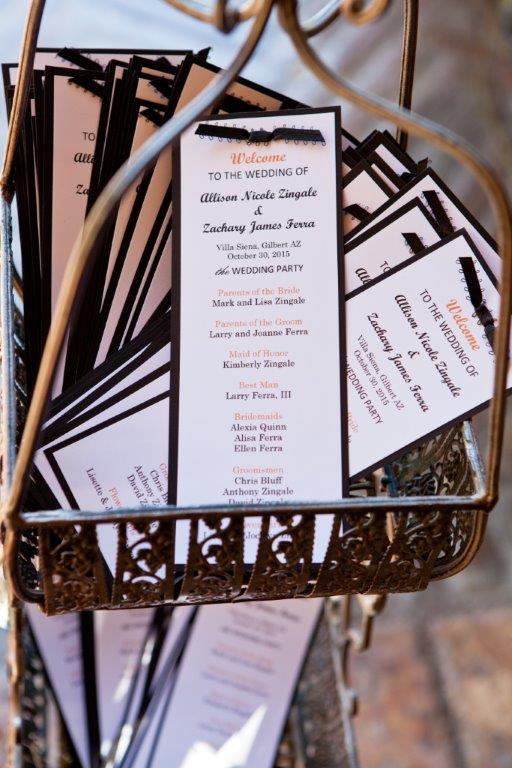 Welcome
TO THE WEDDING OF
Allison Nicole Zingale
&
Zachary James Ferra
Villa Siena, Gilbert AZ
October 30, 2015
the WEDDING PARTY
Parents of the Bride
Mark and Lisa Zingale
Parents of the Groom
Larry and Joanne Ferra
Maid of Honor
Kimberly Zingale
Best Man
Larry Ferra, III
Bridemaids
Alexia Quinn
Alisa Ferra
Ellen Ferra
Groomsmen
Chris Bluff
Anthony Zingale
David
Welcome
TO THE WEDDING OF
Allison Nicole Zingale
&
Zachary James Ferra
Villa Siena, Gilbert AZ
October 30, 2015
WEDDING PARTY
TO
TO THE
TO THE
Groo
Chris
Anthony
David
Flow
Lisette &